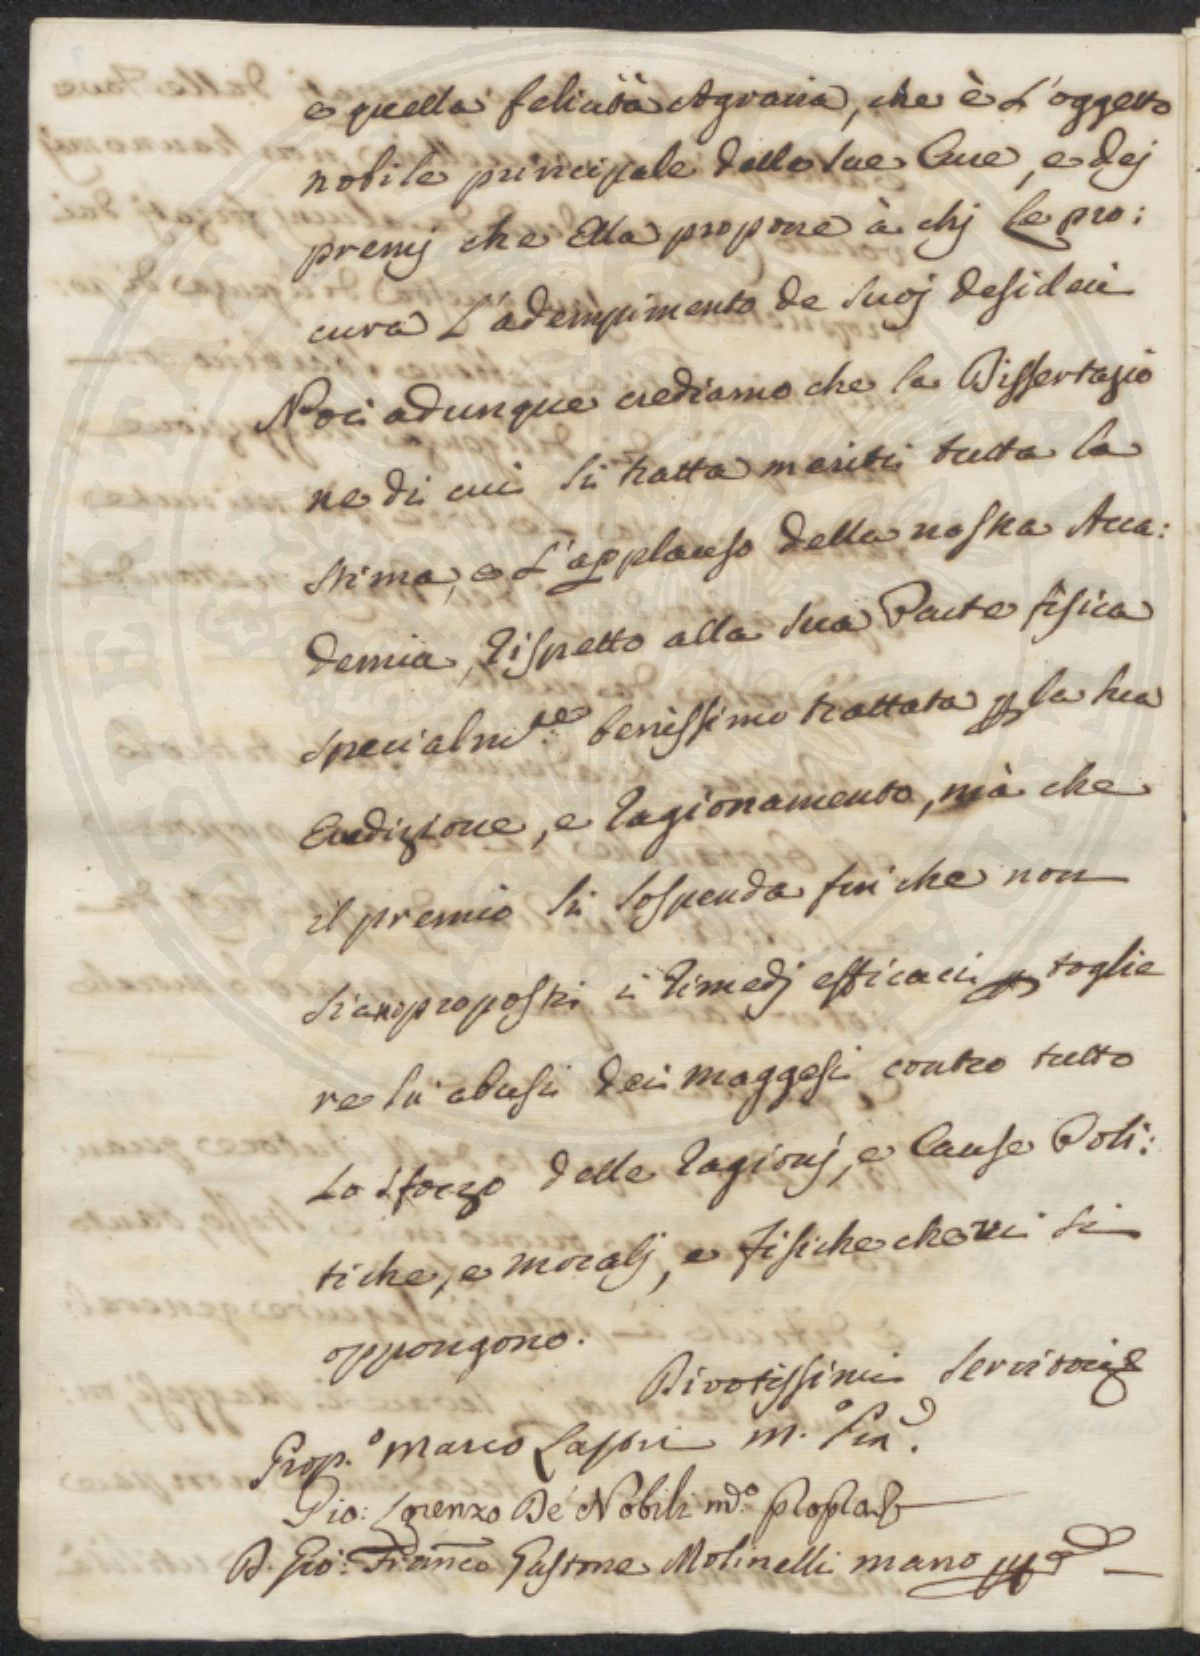 e quella felicità Agraria, che è L'oggetto
nobile principale delle sue Cure, e dej
premj che Ella propone à chj Le pro:
cura L'adempimento de suoj desiderii
Noi adunque crediamo che la Dissertazio
ne di cui si tratta meriti tutta la
stima, e L'applauso della nostra Acca:
demia, rispetto alla sua Parte fisica
specialm.te benissimo trattata p la sua
Erudizione, e ragionamento, mà che
il premio si sospenda fin che non
siano proposti i rimedj efficaci p toglie
re li abusi dei maggesi contro tutto
Lo sforzo delle ragionj, e Cause Poli:
tiche, e moralj, e fisiche che vi si
oppongono.
Divotissimi Servitori
Prop.o Marco Lastri m.o
Gio: Lorenzo De' Nobili m.o
D. Gio: Franco Gastone Molinelli mano